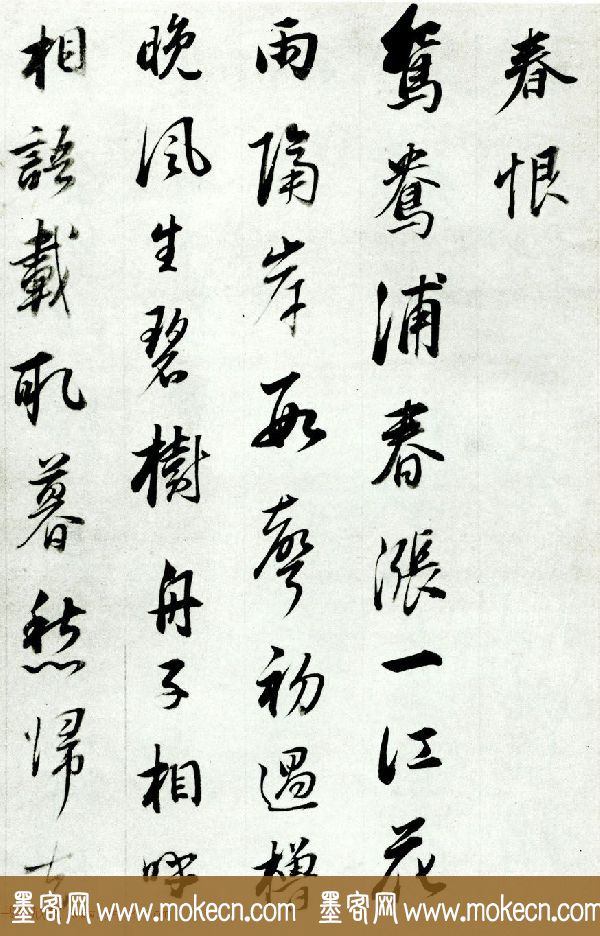 春恨
鴛鴦浦春漲一江花
雨隔岸數聲初過櫓
晚風生碧樹舟子相呼
相語載取暮愁歸去
墨客网 www.mokecn.com 墨客网 www.mokecn.com